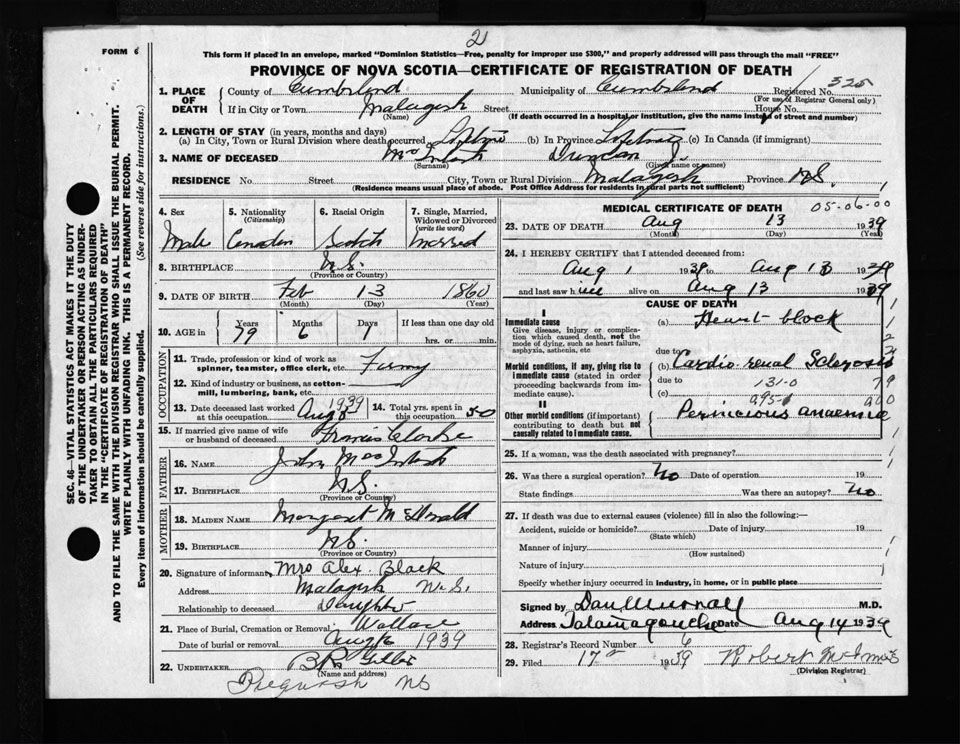 FORM 6
2
This form if placed in an envelope, marked "Dominion Statistics—Free, penalty for improper use $300," and properly addressed will pass through the mail "FREE"
PROVINCE OF NOVA SCOTIA—CERTIFICATE OF REGISTRATION OF DEATH
SEC. 46—VITAL STATISTICS ACT MAKES IT THE DUTY
OF THE UNDERTAKER OR PERSON ACTING AS UNDER-
TAKER TO OBTAIN ALL THE PARTICULARS REQUIRED
IN THE "CERTIFICATE OF REGISTRATION OF DEATH"
AND TO FILE THE SAME WITH THE DIVISION REGISTRAR WHO SHALL ISSUE THE BURIAL PERMIT.
WRITE PLAINLY WITH UNFADING INK. THIS IS A PERMANENT RECORD.
Every item of information should be carefully supplied. (See reverse side for instructions.)
1. PLACE OF DEATH County of Cumberland Municipality of Cumberland Registered No. 325
(For use of Registrar General only)
If in City or Town Malagash Street House No.
(Name) (If death occurred in a hospital or institution, give the name instead of street and number)
2. LENGTH OF STAY (in years, months and days)
(a) In City, Town or Rural Division where death occurred Lifetime (b) In Province Lifetime (c) In Canada (if immigrant)
3. NAME OF DECEASED MacIntosh Duncan
(Surname) (Given name or names)
RESIDENCE No. Street City, Town or Rural Division Malagash Province N.S.
(Residence means usual place of abode. Post Office Address for residents in rural parts not sufficient)
4. Sex 5. Nationality (Citizenship) 6. Racial Origin 7. Single, Married, Widowed or Divorced (write the word)
Male Canadian Scotch Married
8. BIRTHPLACE N.S.
(Province or Country)
9. DATE OF BIRTH Feb 13 1860
(Month) (Day) (Year)
10. AGE in Years Months Days If less than one day old
79 6 1 hrs. or min.
OCCUPATION
11. Trade, profession or kind of work as
spinner, teamster, office clerk, etc.
12. Kind of industry or business, as cotton-
mill, lumbering, bank, etc.
13. Date deceased last worked at this occupation Aug 1939 14. Total yrs. spent in this occupation 50
15. If married give name of wife
or husband of deceased Clarke
FATHER
16. NAME John MacIntosh
17. BIRTHPLACE N.S.
(Province or Country)
MOTHER
18. MAIDEN NAME Margaret McDonald
19. BIRTHPLACE N.S.
(Province or Country)
20. Signature of informant Mrs Alex. Black
Address Malagash N.S.
Relationship to deceased Daughter
21. Place of Burial, Cremation or Removal Wallace
Date of burial or removal Aug 16 1939
22. UNDERTAKER
(Name and address)
Pugwash NS
MEDICAL CERTIFICATE OF DEATH 05-06-00
23. DATE OF DEATH Aug 13 1939
(Month) (Day) (Year)
24. I HEREBY CERTIFY that I attended deceased from:
Aug 1 1939 to Aug 13 1939
and last saw him alive on Aug 13 1939
CAUSE OF DEATH
I
Immediate cause (a) Heart block
Give disease, injury or complica-
tion which caused death, not the
mode of dying, such as heart failure,
asphyxia, asthenia, etc
due to
Morbid conditions, if any, giving rise to
immediate cause (stated in order
proceeding backwards from im-
mediate cause).
(b) Cardio renal Sclerosis
due to 131-0
(c)
II
Other morbid conditions (if important)
contributing to death but not
causally related to immediate cause.
Pernicious anaemia
25. If a woman, was the death associated with pregnancy?
26. Was there a surgical operation? No Date of operation 19
State findings Was there an autopsy? No
27. If death was due to external causes (violence) fill in also the following:—
Accident, suicide or homicide? Date of injury 19
(State which)
Manner of injury
(How sustained)
Nature of injury
Specify whether injury occurred in industry, in home, or in public place
Signed by Dan Murray M.D.
Address Tatamagouche Date Aug 14 1939
28. Registrar's Record Number 6
29. Filed 17 1939 Robert
(Division Registrar)